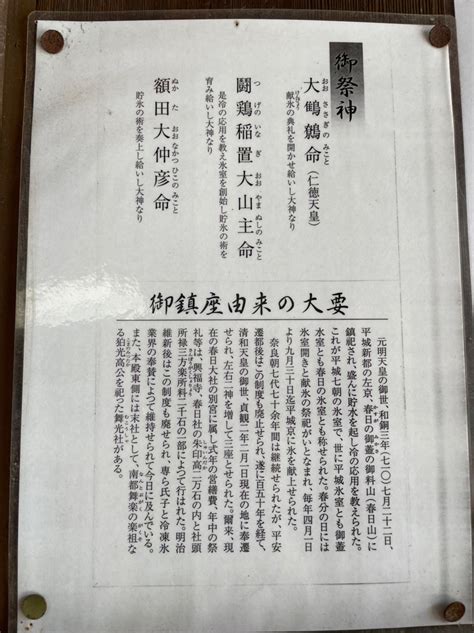 御祭神
大鷦鷯命(仁徳天皇)
おおささぎのみこと
献氷の典礼を開かせ給いし大神なり
けんぴょう
闘鶏稲置大山主命
つげのいなぎおおやまぬしのみこと
是冷の応用を教え氷室を創始し貯氷の術を
育み給いし大神なり
額田大仲彦命
ぬかたおおなかつひこのみこと
貯氷の術を奏上し給いし大神なり
御鎮座由来の大要
元明天皇の御世、和銅三年(七一〇)七月二十二日、
平城新都の左京、春日の御蓋の御料山(春日山)に
鎮祀され、盛んに貯水を起し冷の応用を教えられた。
これが平城七朝の氷室で、世に平城氷室とも御蓋
氷室とも春日の氷室とも称せられた。春分の日には
氷室開きと献氷の祭祀がいとなまれ、毎年四月一日
より九月三十日迄平城京に氷を献上せられた。
奈良朝七代七十余年間は継続せられたが、平安
遷都後はこの制度も廃止せられ、遂に百五十年を経て、
清和天皇の御世、貞観二年二月一日現在の地に奉遷
せられ、左右二神を増して三座とせられた。爾来、現
在の春日大社の別宮に属し式年の営繕費、年中の祭
礼等は、興福寺、春日社の朱印高二万石の内と社頭
所禄三方楽所料二千石の二部によって行はれた。明治
維新後はこの制度も廃せられ、専ら氏子と冷凍氷
業界の奉賛によって維持せられて今日に及んでいる。
また、本殿東側には末社として、南都舞楽の楽祖な
る狛光高公を祀った舞光社がある。